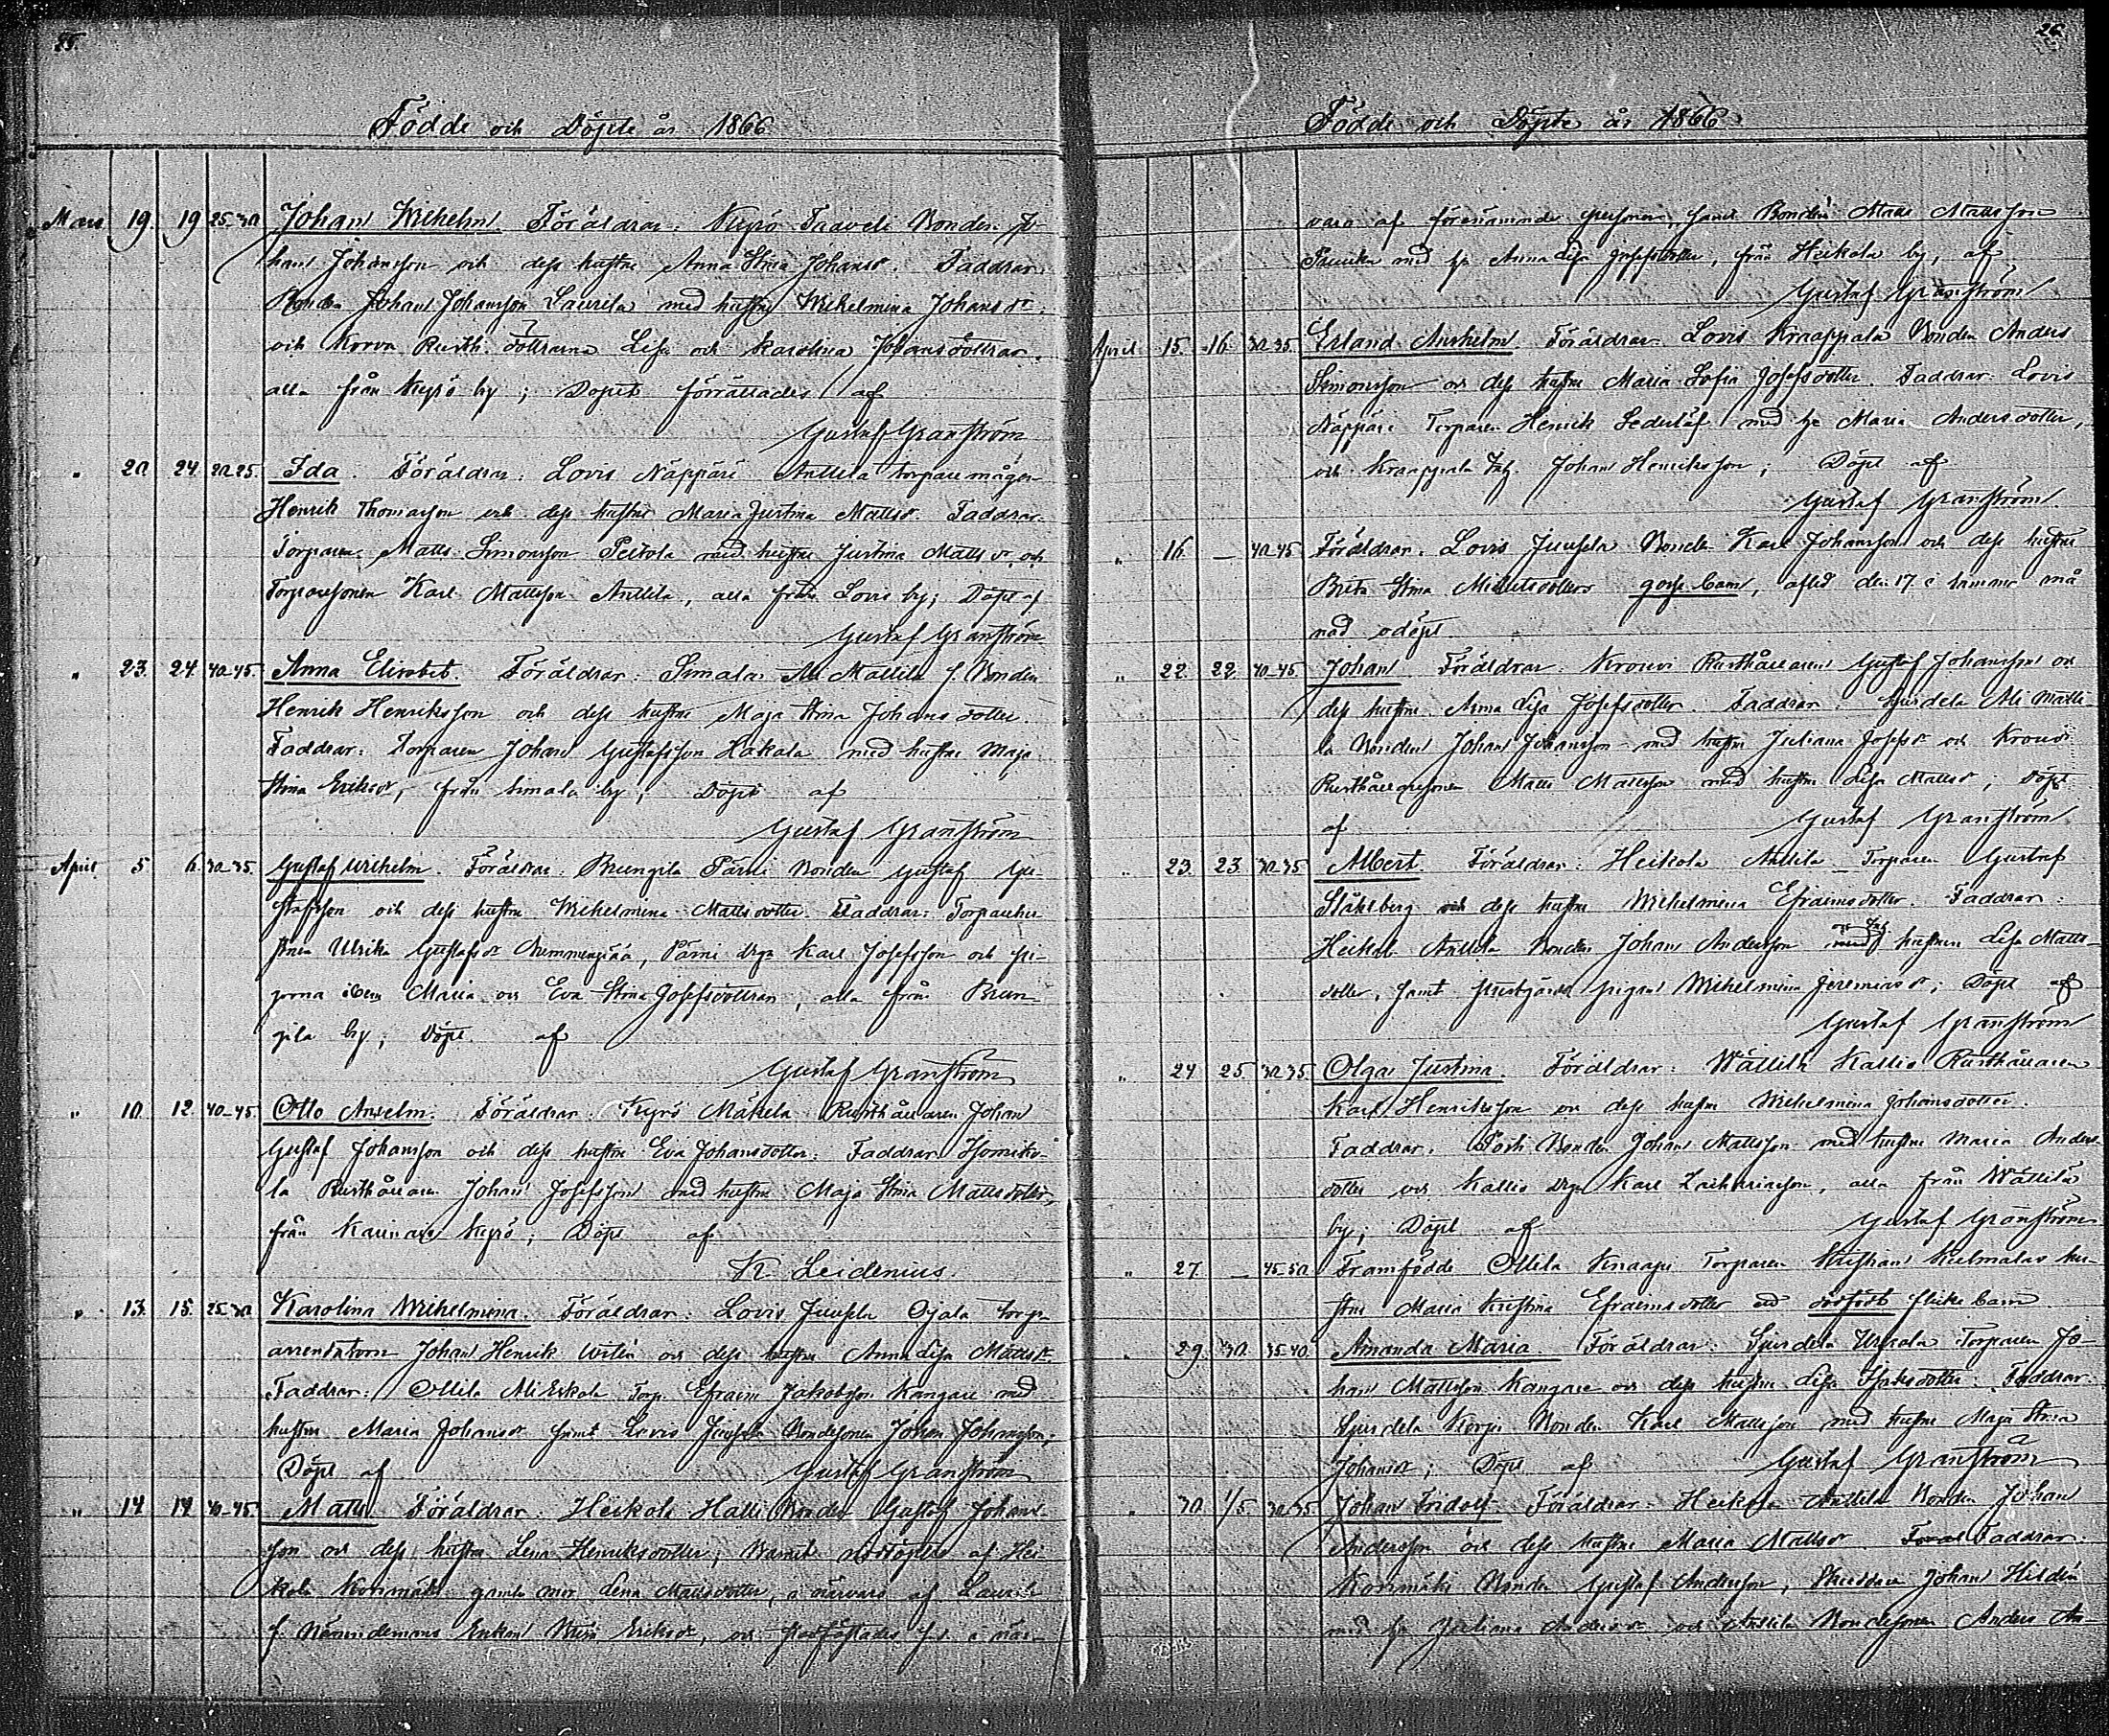 25.
Födde och Döpte år 1866
Mars 19. 19 25-30 Johan Wilhelm. Föräldrar: Kyrö Taavela Bonden Jo-
han Johansson och dess hustru Anna Stina Johansd. Faddrar:
Bonden Johan Johansson Laurela med hustru Wilhelmina Johansdr.
och Korva Rusth. döttrarna Lisa och Karolina Johansdöttrar,
alla från Kyrö by; Dopet förrättades af
Gustaf Granström
" 20 24 20-25. Ida. Föräldrar: Lovis Näppäri Anttila torpare mågen
Henrik Thomasson och dess hustru Maria Justina Mattsd. Faddrar:
Torparen Matts Simonsson Peltola med hustru Justina Mattsdr. och
Torparesonen Karl Mattsson Anttila, alla från Lovis by; Döpt af
Gustaf Granström
" 23. 24 40-45. Anna Elisabet. Föräldrar: Simala Ali Mattila f. Bonden
Henrik Henriksson och dess hustru Maja Stina Johansdotter.
Faddrar: Torparen Johan Gustafsson Hakala med hustru Maja
Stina Eriksdr, från Simala by; Döpt af
Gustaf Granström
April 5 6. 30-35. Gustaf Wilhelm. Föräldrar: Brungila Pärni Bonden Gustaf Gu-
stafsson och dess hustru Wilhelmina Mattsdotter. Faddrar: Torparehu-
strun Ulrika Gustafsdr Nummenpää, Pärni drg Karl Josefsson och pi-
gorna Maria och Eva Stina Josefsdöttrar, alla från Brun-
gila by; Döpt af
Gustaf Granström
" 10. 12. 40-45. Otto Anselm. Föräldrar: Kyrö Mäkelä Rusthållaren Johan
Gustaf Johansson och dess hustru Eva Johansdotter. Faddrar:
la Rusthållaren Johan Josefsson med hustru Maja Stina Mattsdotter,
från Karinais Kyrö; Döpt af
K Leidenius.
" 13. 15. 25-30 Karolina Wilhelmina. Föräldrar: Lovis Juusela Ojala torp-
arrendatorn Johan Henrik Witén och dess hustru Anna Lisa Mattsdr.
Faddrar: Ollila Ali Eskola Torp. Efraim Jakobsson Kangare med
hustru Maria Johansdr samt Lovis Juusela Bondesonen Johan Johansson;
Döpt af Gustaf Granström
" 14 14 40-45. Matts. Föräldrar: Heikola Halli Bonden Gustaf Johans-
son och dess hustru Lena Henriksdotter; Barnet nöddöptes af Hei-
kola Korsmäki gamla mor Lena Mattsdotter, i närvaro af Laurila
f. Nämndemans Enkan Stina Eriksdr, och stadfästades i när-
26.
Födde och Döpte år 1866
varo af förenämnde personer, samt Bonden Matts Mattsson
med h. Anna Lisa Josefsdotter, från Heikola by, af
Gustaf Granström
April 15. 16 30-35. Erland Anshelm. Föräldrar: Lovis Knaappala Bonden Anders
Simonsson och dess hustru Maria Sofia Josefsdotter. Faddrar: Lovis
Näppäri Torparen Henrik Sederlöf med h. Maria Andersdotter,
och Knaappala Johan Henriksson; Döpt af
Gustaf Granström.
" 16 — 40-45 Föräldrar: Lovis Juusela Bonden Karl Johansson och dess hustru
Brita Stina Mickelsdotters gosse barn, afled den 17 i samma må
nad odöpt.
" 22. 22. 40-45 Johan Föräldrar: Krouvi Rusthållaren Gustaf Johansson och
dess hustru Anna Lisa Josefsdotter. Faddrar: Ali Matti-
la Bonden Johan Johansson med hustru Juliana Josefsdr och Krouvi
Rusthållaresonen Matts Mattsson med hustru Lisa Mattsdr; Döpt
af Gustaf Granström
" 23. 23. 30-35 Albert. Föräldrar: Heikola Anttila Torparen Gustaf
Ståhlberg och dess hustru Wilhelmina Efraimsdotter. Faddrar:
Heikola Anttila Bonden Johan Andersson hustrun Lisa Matts-
dotter, samt Prestgårds pigan Wilhelmina Jeremiasdr; Döpt af
Gustaf Granström
" 24 25. 30-35. Olga Justina. Föräldrar: Wättilä Kallio Rusthållaren
Karl Henriksson och dess hustru Wilhelmina Johansdotter.
Faddrar: Bonden Johan Mattsson med hustru Maria Anders-
dotter och Kallio drg Karl Zachariasson, alla från Wättilä
by; Döpt af Gustaf Granström
" 27. — 45-50 Framfödde Ollila Knaapi Torparen hu-
stru Maria Kristina Efraimsdotter ett dödfödt flicke barn.
" 29. 30. 35-40 Amanda Maria. Föräldrar: Torparen Jo-
han Mattsson Kangare och dess hustru Lisa Faddrar:
Bonden Karl Mattsson med hustru Maja Stina
Johansdr; Döpt af Gustaf Granström
" 30. 1/5. 30-35. Johan Fridolf. Föräldrar: Heikola Anttila Bonden Johan
Andersson och dess hustru Maria Mattsdr. Faddrar:
Korsmäki Bonden Gustaf Andersson, Johan Hildén
med h. Juliana Andersdr och Anttila Bondesonen Anders An-